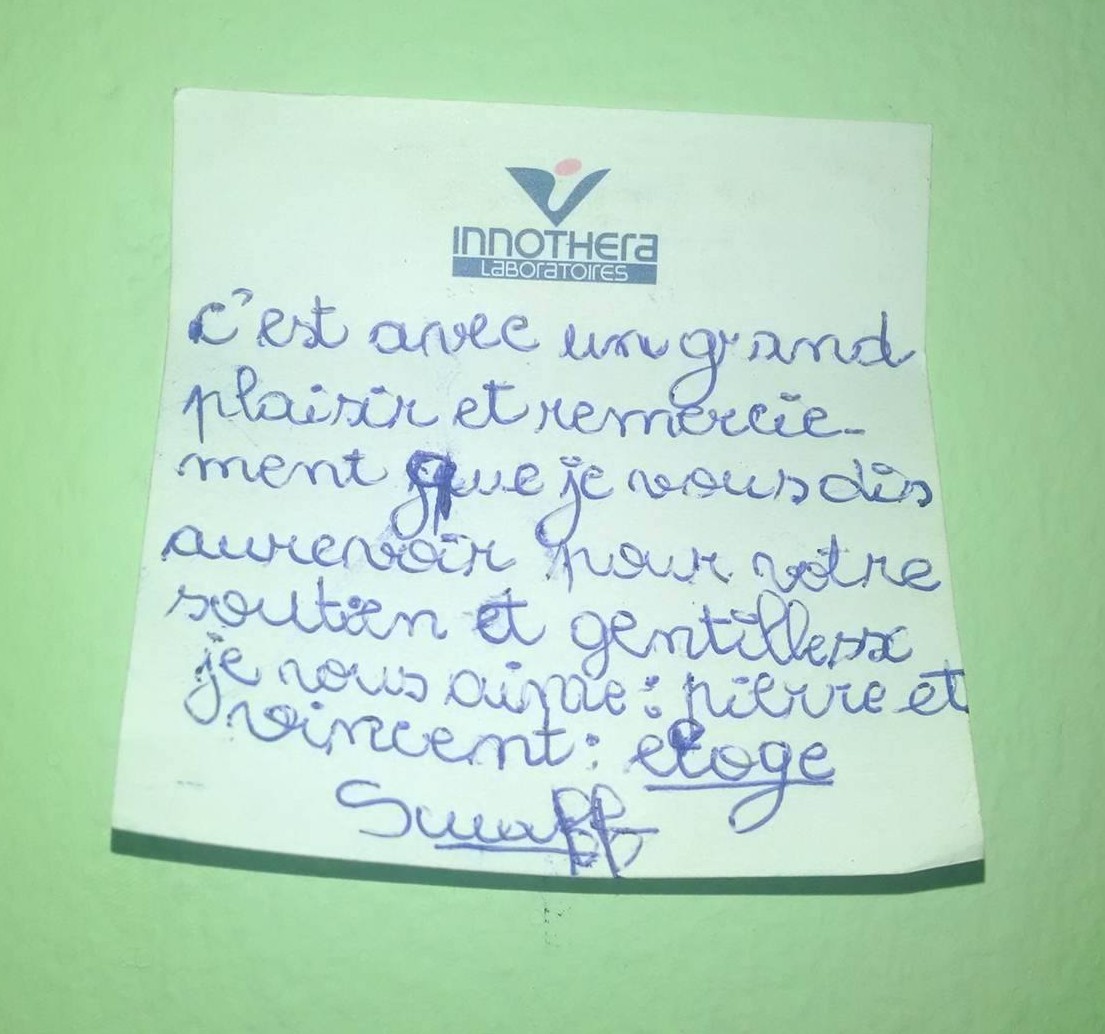 INNOTHERA
LABORATOIRES
c'est avec un grand
plaisir et remercie-
ment que je vous dis
aurevoir pour votre
soutien et gentillesse
je vous aime : pierre et
vincent : eloge